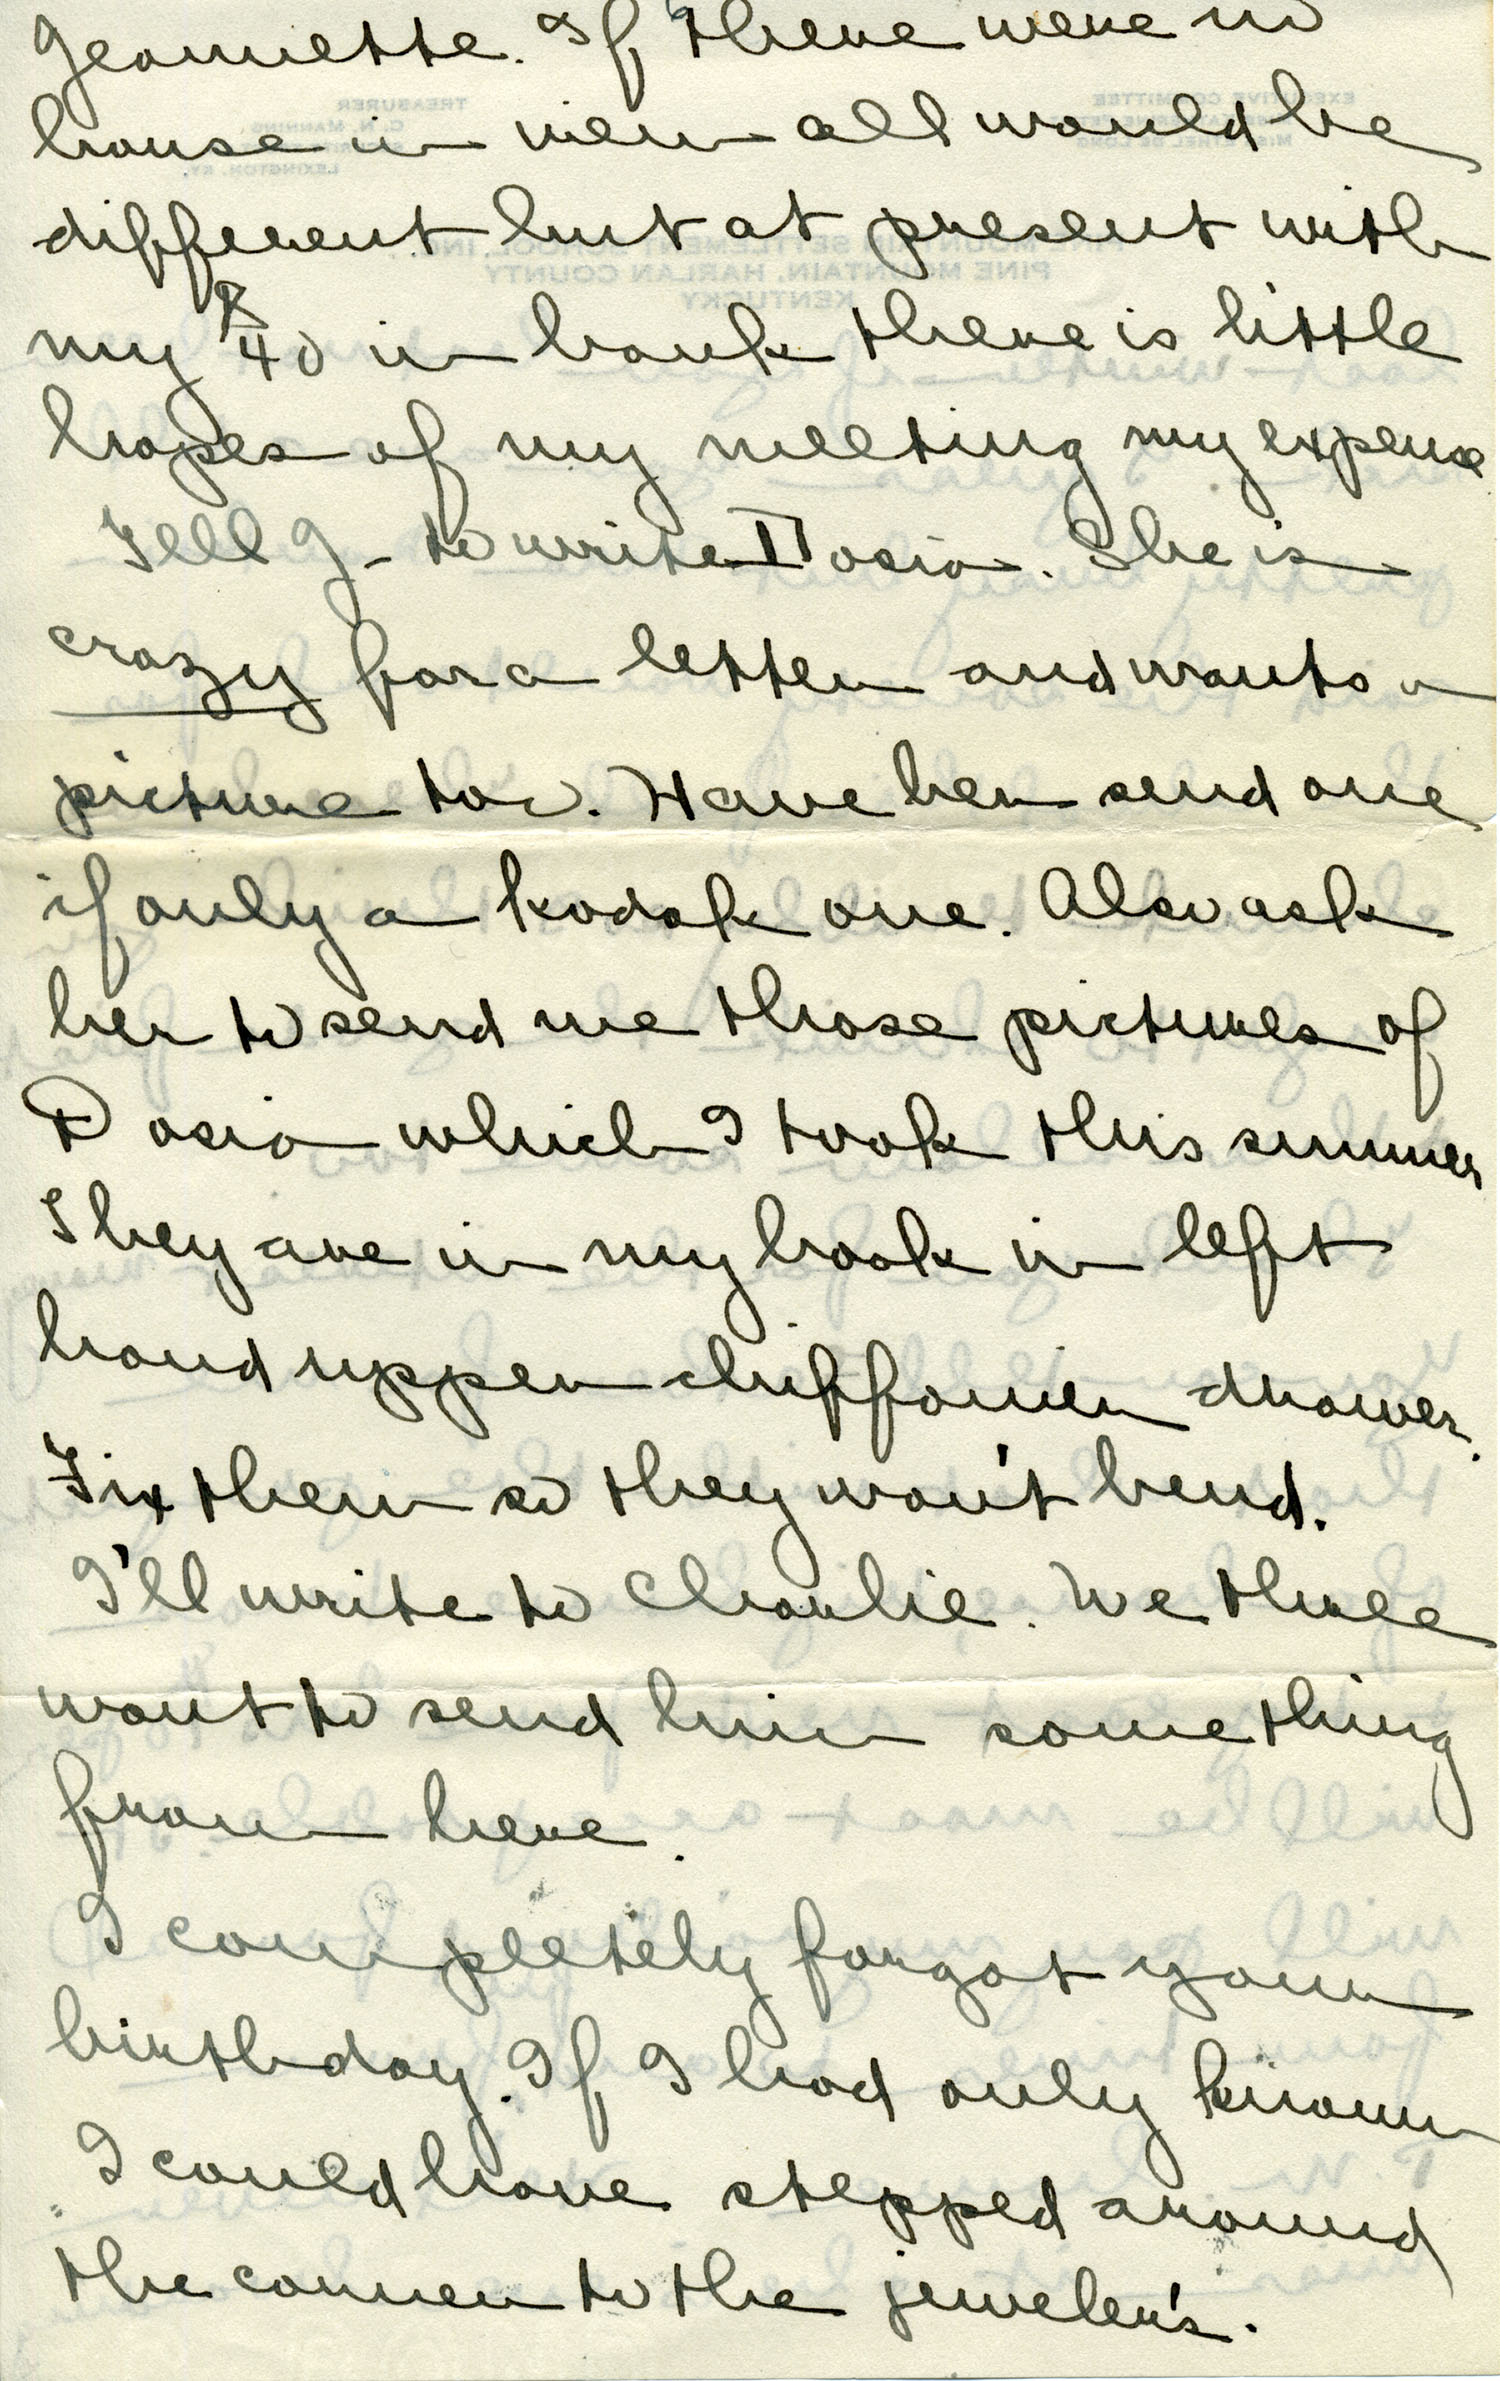 Geomette. If there were no
house in view all would be
different but at present with
my $40 in bank there is little
hopes of my meeting my expense
Tell G- to write Dosia. She is
crazy for a letter and wants a
picture too. Have her send one
if only a kodak one. Also ask
her to send me those pictures of
Dosia which I took this summer
They are in my book in left
hand upper chiffonier drawer.
Fix them so they won't bend.
I'll write to Charlie. We three
want to send him something
from here.
I completely forgot your
birthday. If I had only known
I could have stepped around
the corner to the jeweler's.
EXECUTIVE COMMITTEE
MISS ETHEL DE LONG
TREASURER
C. N. MANNING,
LEXINGTON, KY.
PINE MOUNTAIN SETTLEMENT SCHOOL, INC.
PINE MOUNTAIN, HARLAN COUNTY
KENTUCKY